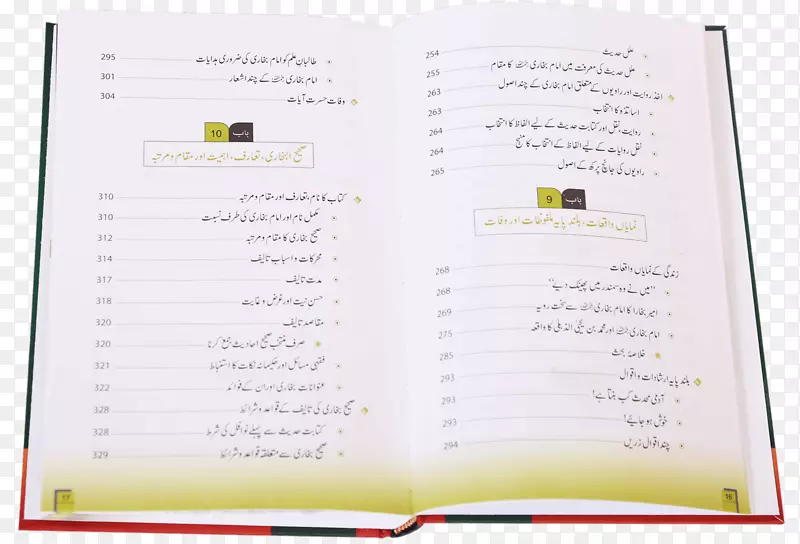 علل حدیث 254
علل حدیث کی معرفت میں امام بخاری رحمہ اللہ کا مقام 255
اخذ روایت اور راویوں کے متعلق امام بخاری کے چند اصول 263
اساتذہ کا انتخاب 263
روایت، نقل اور کتابت حدیث کے لیے الفاظ کا انتخاب 264
نقل روایات کے لیے الفاظ کے انتخاب کا منہج 264
راویوں کی جانچ پرکھ کے اصول 265
باب 9
نمایاں واقعات، بلند پایہ ملفوظات اور وفات
زندگی کے نمایاں واقعات 268
”میں نے وہ سمندر میں پھینک دیے“ 268
امیر بخارا کا امام بخاری رحمہ اللہ سے سخت رویہ 269
امام بخاری رحمہ اللہ اور محمد بن یحییٰ الذہلی کا واقعہ 275
خلاصۂ بحث 285
بلند پایہ ارشادات و اقوال 293
آدمی محدث کب بنتا ہے! 293
خوش ہو جائیے! 293
چند اقوال زریں 294
16
طالبان علم کو امام بخاری کی ضروری ہدایات 295
امام بخاری رحمہ اللہ کے چند اشعار 301
وفات حسرت آیات 304
باب 10
صحیح البخاری، تعارف، اہمیت اور مقام و مرتبہ
کتاب کا نام، تعارف اور مقام و مرتبہ 310
مکمل نام اور امام بخاری کی طرف نسبت 310
صحیح بخاری کا مقام و مرتبہ 312
محرکات و اسباب تالیف 314
مدت تالیف 317
حسن نیت اور غرض و غایت 318
مقاصد تالیف 320
صرف منتخب صحیح احادیث جمع کرنا 320
فقہی مسائل اور حکیمانہ نکات کا استنباط 321
عنوانات بخاری اور ان کے فوائد 322
صحیح بخاری کی تالیف کے قواعد و شرائط 328
کتابت حدیث سے پہلے نوافل کی شرط 328
صحیح بخاری سے متعلقہ قواعد و شرائط 329
17